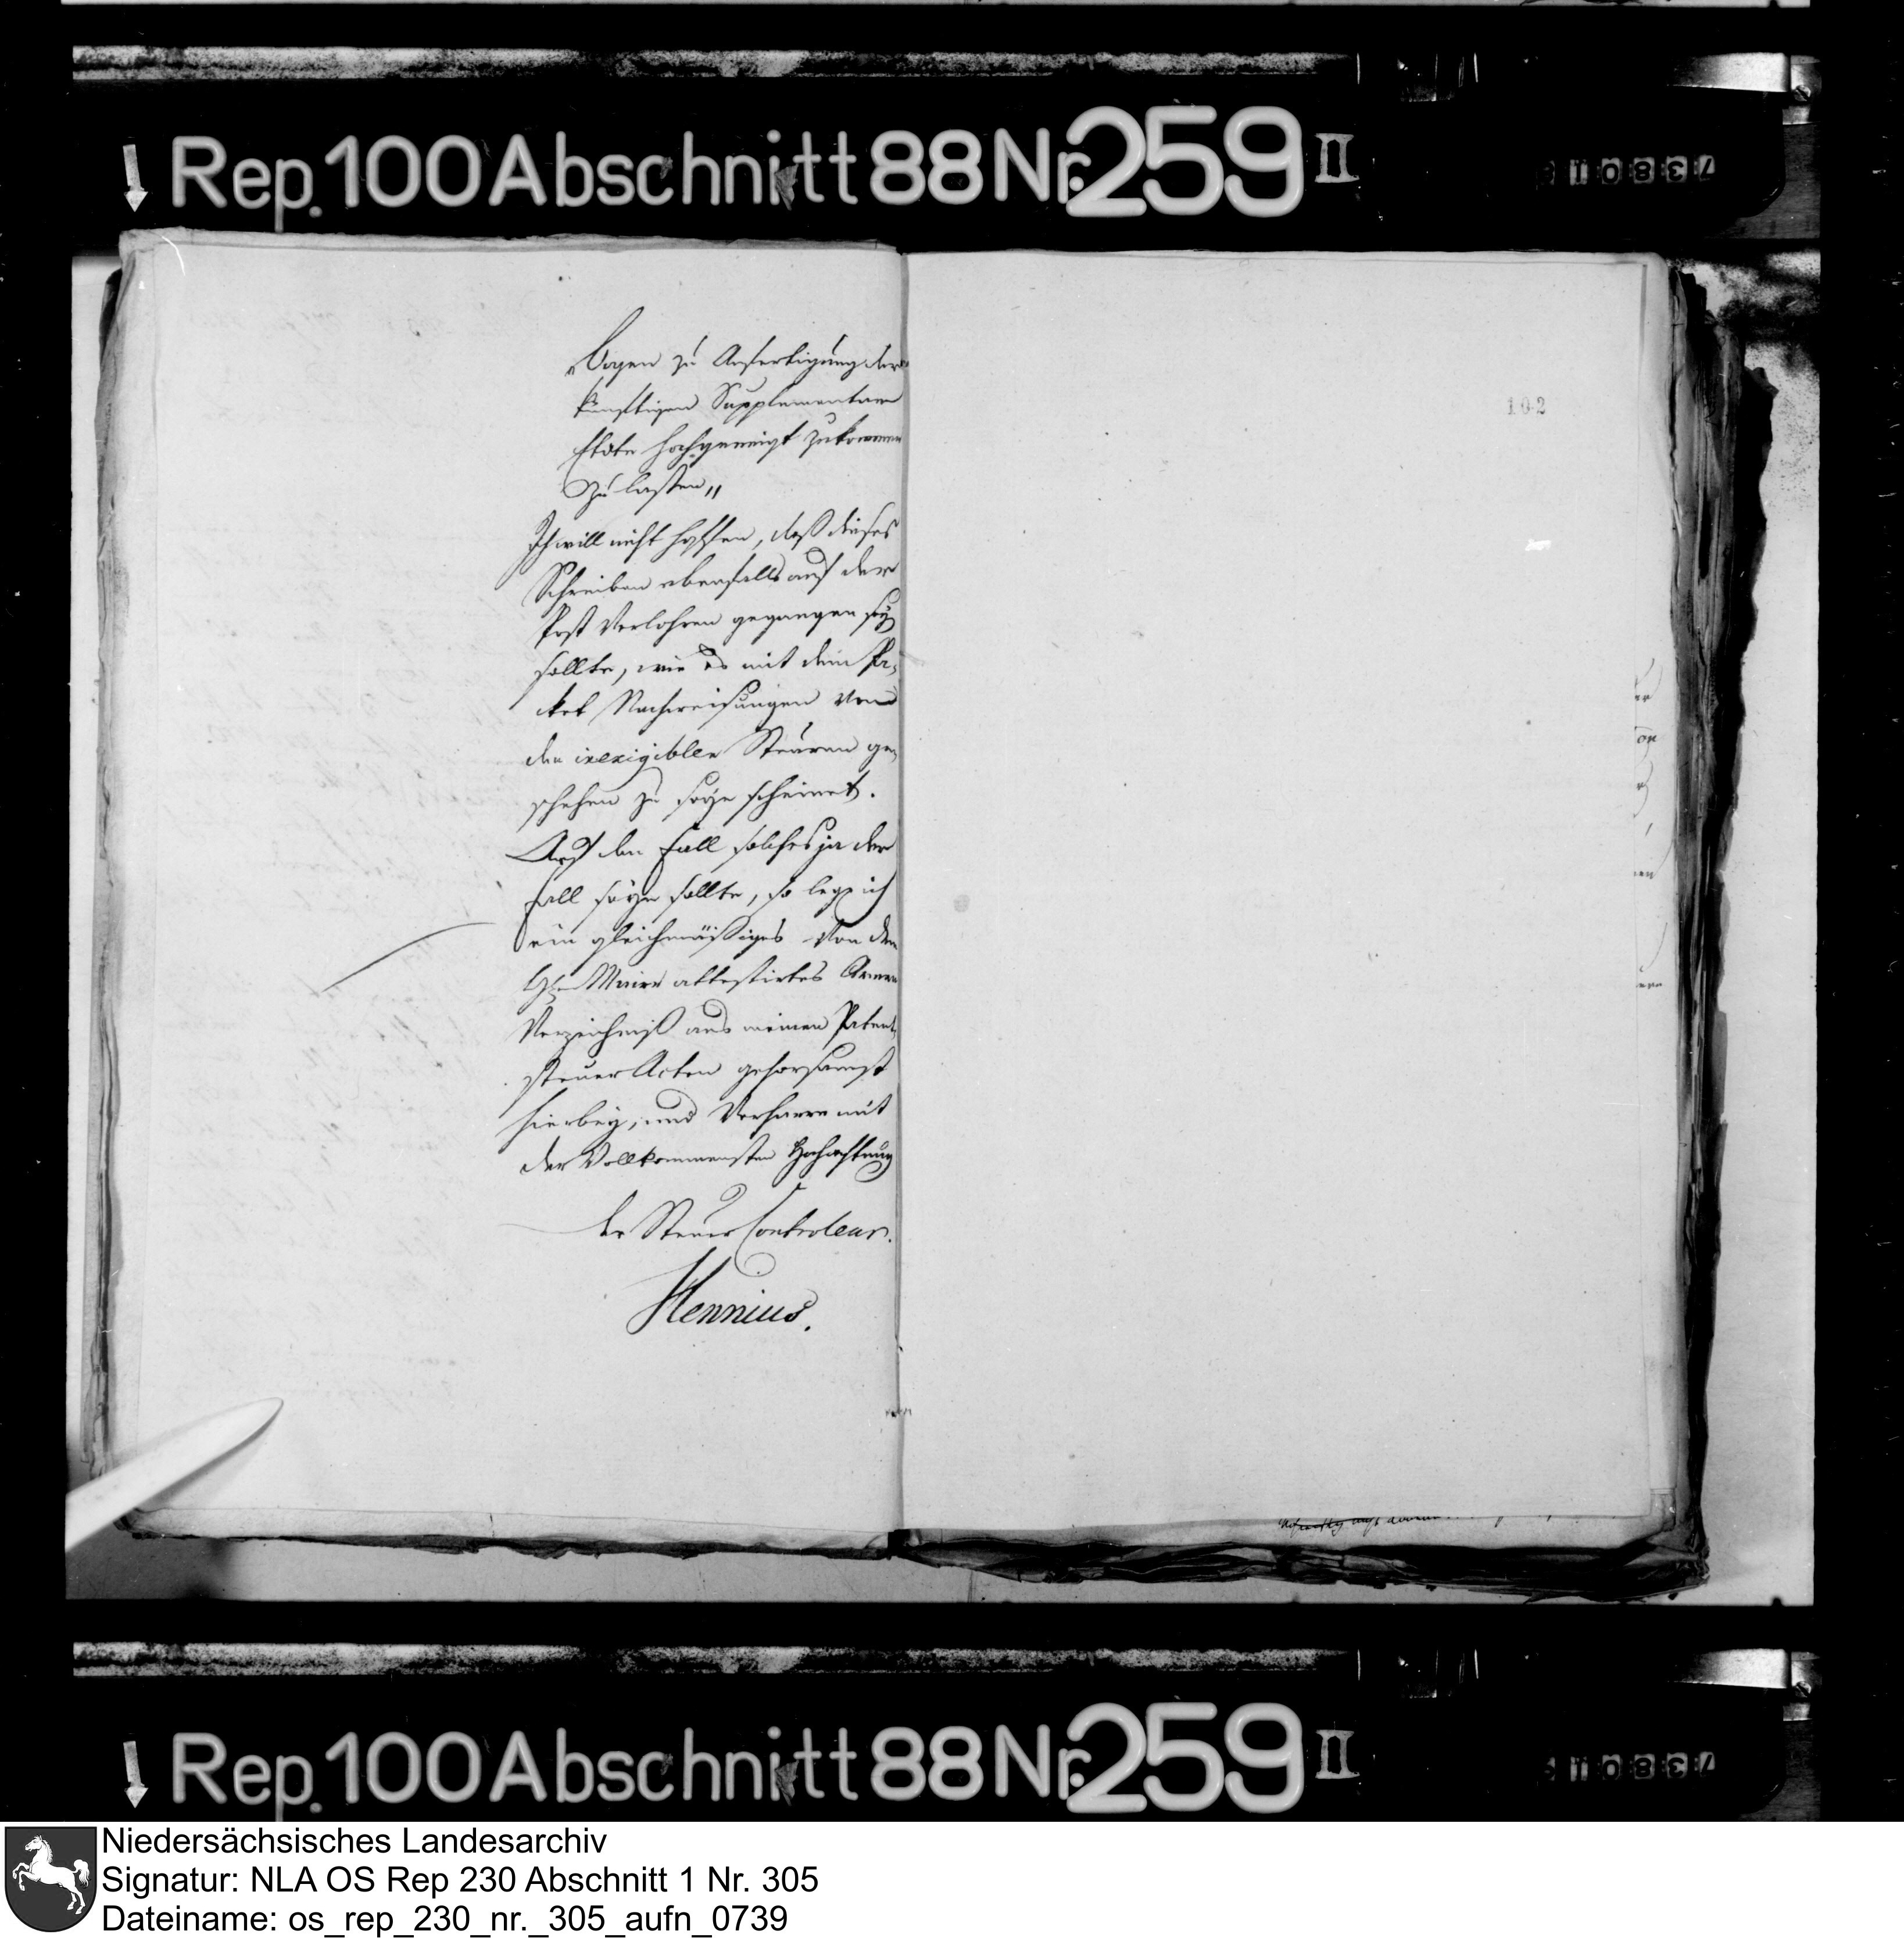 Rep. 100 Abschnitt 88 Nr. 259 II
73801
„Bogen zu Anfertigung der
künftigen Supplementare
Etate hochgeneigt zukommen
zu lassen„
Ich will nicht hoffen, daß dieses
Schreiben ebenfalls auf der
Post verlohren gegangen seyn
sollte, wie es mit dem Pa-
ket Nachweisungen von
den inexigiblen Steuren ge-
schehen zu seyn scheinet.
Auf den Fall solches ja der
Fall seyn sollte, so lege ich
ein gleichmäßiges von dem
Hrn Maire attestirtes Armen
Verzeichniß aus meinen Patent-
steuer Acten gehorsamst
hierbey, und verharre mit
der Vollkommensten Hochachtung
der Steuer Controleur.
Hennius.
102
Rep. 100 Abschnitt 88 Nr. 259 II
73801
Niedersächsisches Landesarchiv
Signatur: NLA OS Rep 230 Abschnitt 1 Nr. 305
Dateiname: os_rep_230_nr._305_aufn_0739